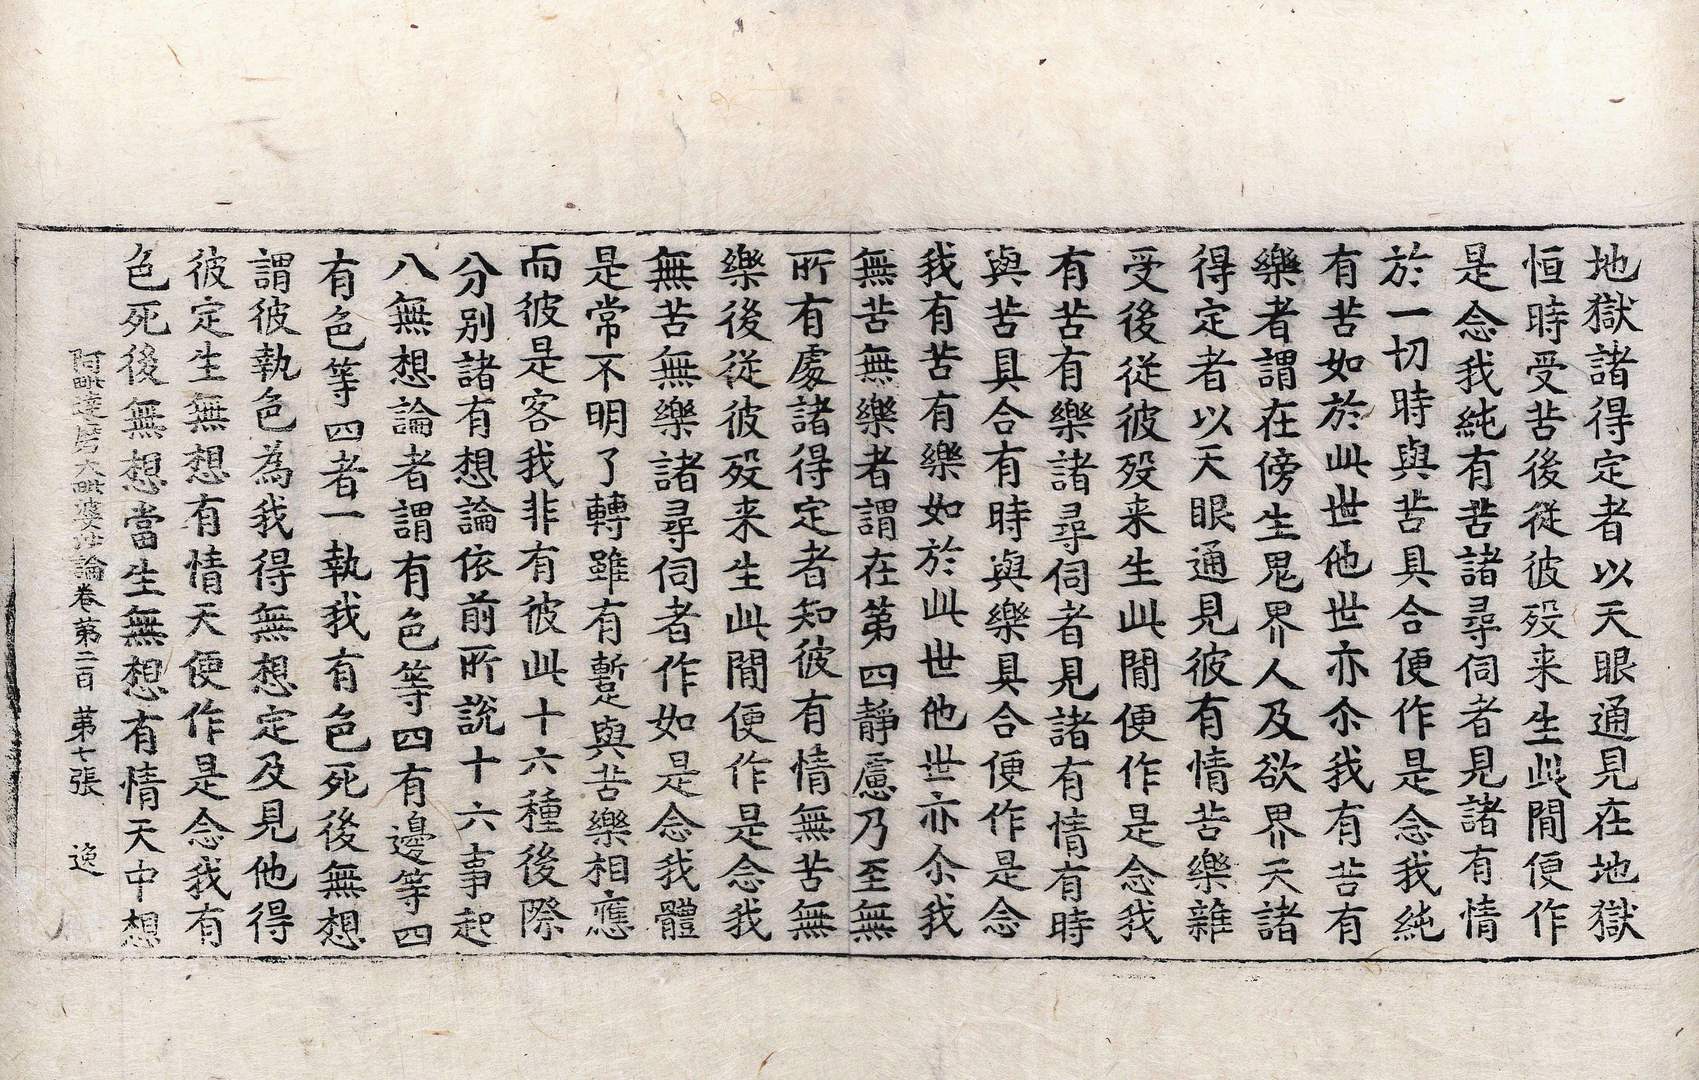 地獄諸得定者以天眼通見在地獄
恒時受苦後従彼歿来生此閒便作
是念我純有苦諸尋伺者見諸有情
於一切時與苦具合便作是念我純
有苦如於此世他世亦尒我有苦有
樂者謂在傍生鬼界人及欲界天諸
得定者以天眼通見彼有情苦樂雜
受後従彼歿来生此閒便作是念我
有苦有樂諸尋伺者見諸有情有時
與苦具合有時與樂具合便作是念
我有苦有樂如於此世他世亦尒我
無苦無樂者謂在第四靜慮乃至無
所有處諸得定者知彼有情無苦無
樂後従彼歿来生此閒便作是念我
無苦無樂諸尋伺者作如是念我體
是常不明了轉雖有蹔與苦樂相應
而彼是客我非有彼此十六種後際
分別諸有想論依前所說十六事起
八無想論者謂有色等四有邊等四
有色等四者一執我有色死後無想
謂彼執色為我得無想定及見他得
彼定生無想有情天便作是念我有
色死後無想當生無想有情天中想
阿毗達磨大毗婆沙論卷第二百 第七張 逸